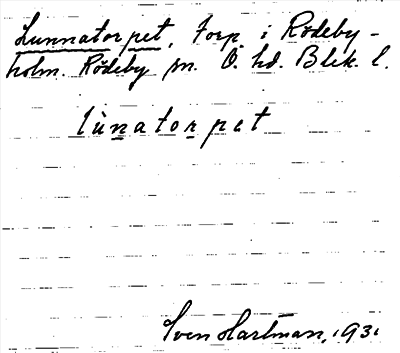 Lunnatorpet, Torp i Rödeby-
holm. Rödeby sn. Ö. hd. Blek. l.
lùnatorpet
Sven Hartman, 1931